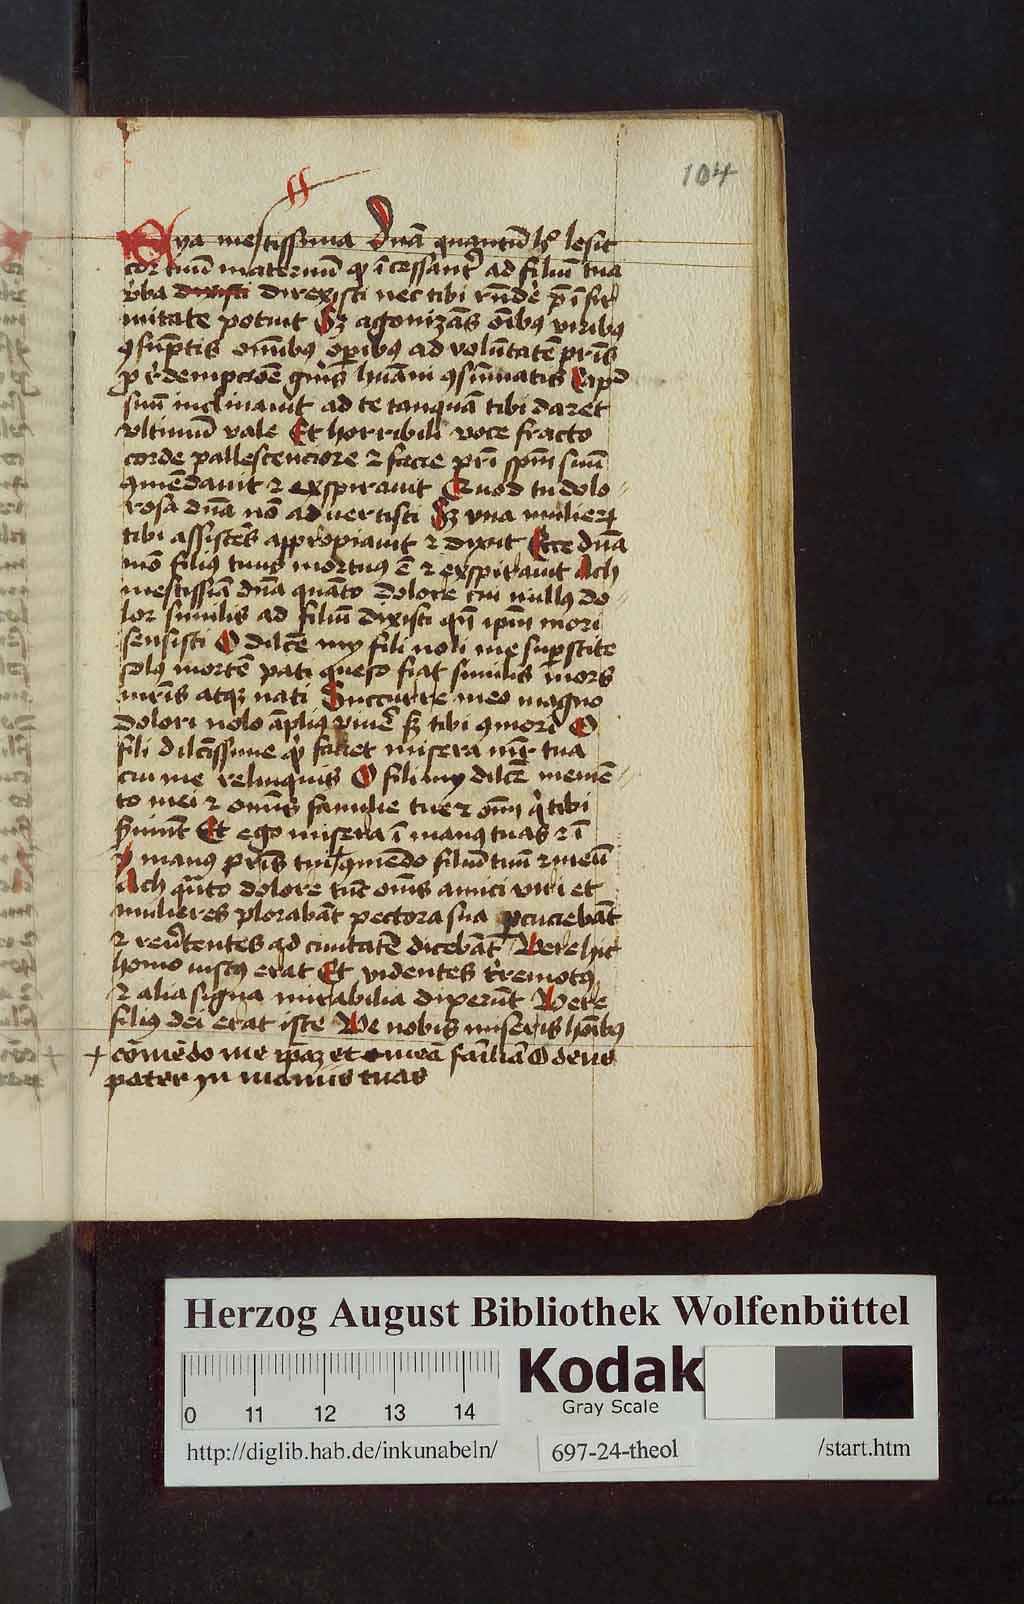 104
Eya mestissima dnā quantū h⁹ lesit
cor tuū maternū ꝙ īcessant̉ ad filiū tua
v̉ba dixisti direxisti nec tibi rn̄dē p̄ īfir
mitate potuit Sꝫ agonizās oībꝰ viribꝰ
ꝯsūptis omībꝰ oꝑibꝰ ad volūtatē pr̄is
ꝑ r̉dempcōē gn̄is hūāni ꝯsūmatis Capᵈ
suū inclinauit ad te tanquā tibi daret
vltimū vale Et horribili voce fracto
corde pallescenciore ⁊ facie pr̄i spm̄ suū
ꝯmēdauit ⁊ exspirauit Quod tu dolo
rosa dnā nō aduertisti Sꝫ vna mulieꝝ
tibi assistēs appropiauit ⁊ dixit Ecce dnā
mō filiꝰ tuus mortuꝰ ē ⁊ exspirauit Ach
mestissīa dnā quāto dolore cui nullꝰ do
lor similis ad filiū dixisti qn̄ ipm̄ mori
sensisti O dilcē my fili noli me suꝑstite
solꝰ mortē pati queso fiat similis mors
mr̄is atqꝫ nati Succurre meo magno
dolori nolo āpliꝰ viuē sꝫ tibi ꝯmori O
fili dilcīssime qͥd faciet misera mr̄ tua
cui me relinquis O fili my dilcē memē
to mei ⁊ omīs familie tue ⁊ oīm qͥ tibi
s̉uiūt Et ego misera ī manꝰ tuas ⁊ ī
manꝰ pr̄is tui ꝯmēdo filiū tuū ⁊ meū
Ach quāto dolore tūc omīs amici viri et
mulieres plorabāt pectora sua ꝑcuciebāt
⁊ reủtentes ad ciuitatē dicebāt Vere hic
homo iustꝰ erat Et videntes t̉remotꝰ
⁊ alia signa mirabilia dixerūt Vere
filiꝰ dei erat iste Ve nobis miseris hoībꝰ
+ cōmēdo me ip̄aꝫ et meā famliā O deus
pater in manus tuas
Herzog August Bibliothek Wolfenbüttel
0 11 12 13 14
Kodak
Gray Scale
http://diglib.hab.de/inkunabeln/ 697-24-theol /start.htm